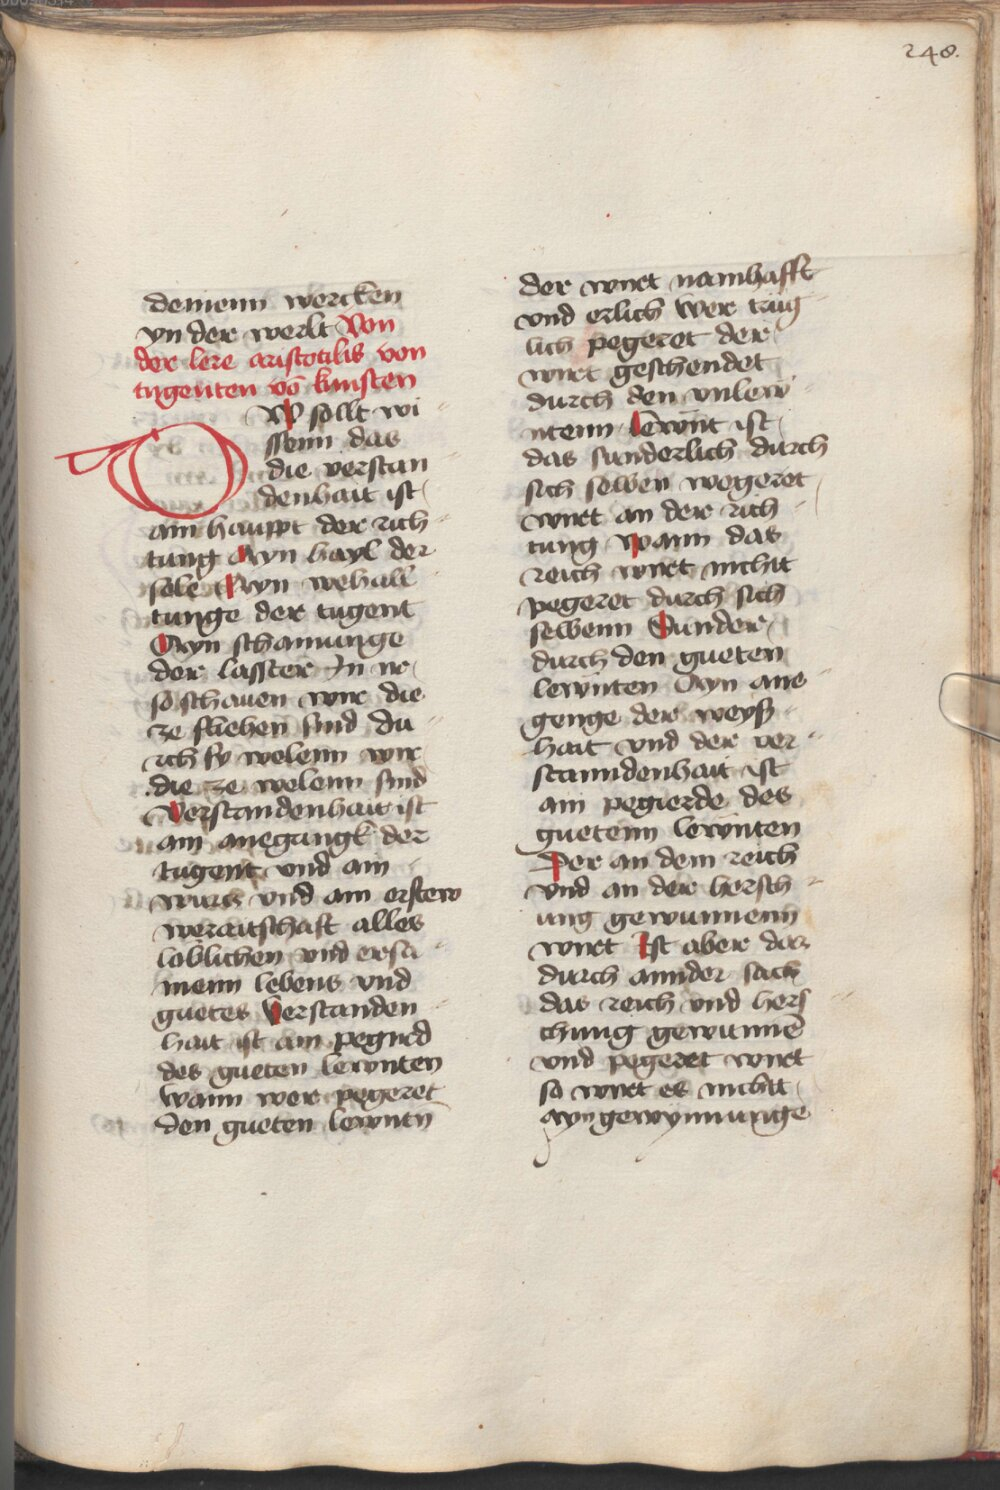 248.
deinenn wercken
yn der werlt Von
der lere aristotilis von
tugenten vō kunsten
DW sollt wi
ssenn das
die verstan
denhait ist
ain haupt der rich
tung Ayn hayl der
sele Ayn wehall
tunge der tugent
Ayn schawunge
der lasster In ir
so schauen wir die
ze fliehen sind du
rch sy welenn wir
die ze welenn sind
Verstandenhait ist
ain anegangk der
tugent vnd ain
wurcz vnd ain erstew
weraitschaft alles
loblichen vnd ersa
menn lebens vnd
guetes Verstanden
hait ist ain pegird
des gueten lewnten
Wann wer pegeret
den gueten lewntn
der wirt namhafft
vnd erlich Wer trug
lich pegeret der
wirt geschendet
durch den vnlew
ntenn lewnt ist
das sunderlich durch
sich selben wegeret
wirt an der rich
tung Wann das
reich wirt nicht
pegeret durch sich
selbenn Sunder
durch den gueten
lewnten Ayn ane
genge der weyß
hait vnd der ver
stanndenhait ist
ain pegierde des
guetenn lewnten
Der an dem reich
vnd an der hersch
ung gewunnenn
wirt Ist aber daz
durch annder sach
das reich vnd hers
chung gewunnē
vnd pegeret wirt
so wirt es nicht
ayn gewynnunge